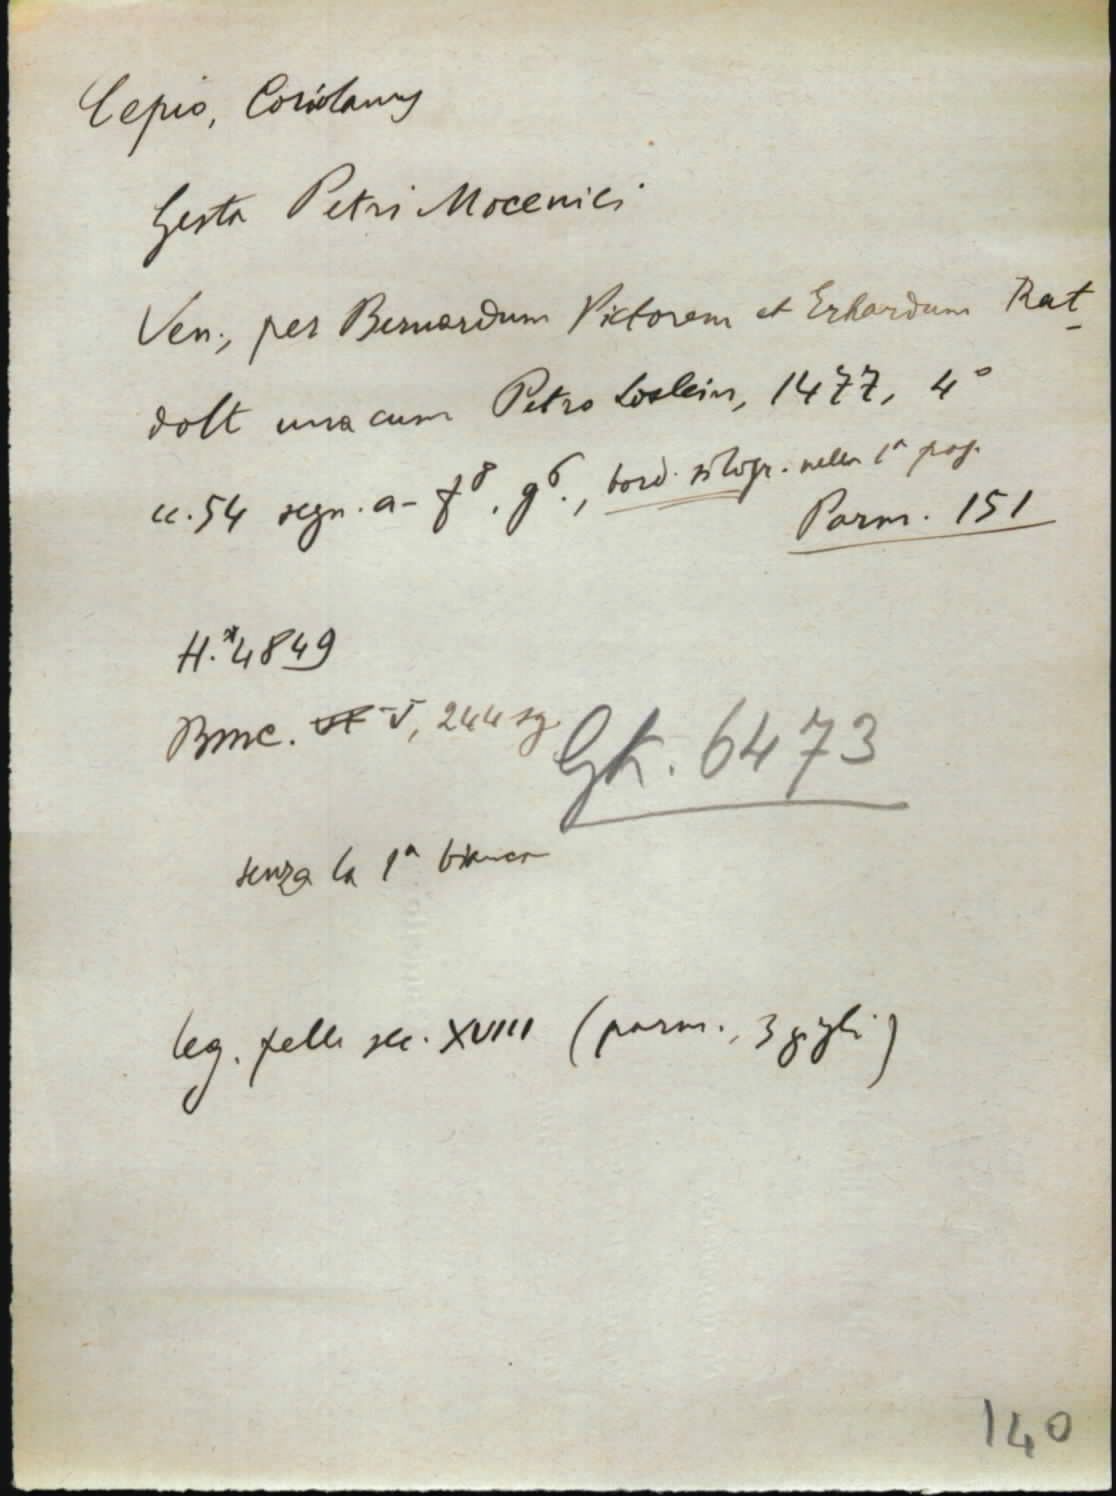 Cepio, Coriolanus
Gesta Petri Mocenici
Ven., per Bernardum Pictorem et Erhardum Rat-
dolt una cum Petro Loslein, 1477, 4°
cc. 54 segn. a-f⁸, g⁶., bord. silogr. nella 1ª pag.
Parm. 151
H.*4849
BMC. V, 244 sg.
GK. 6473
senza la 1ª bianca
leg. pelle sec. XVIII (parm., 3 gigli)
140